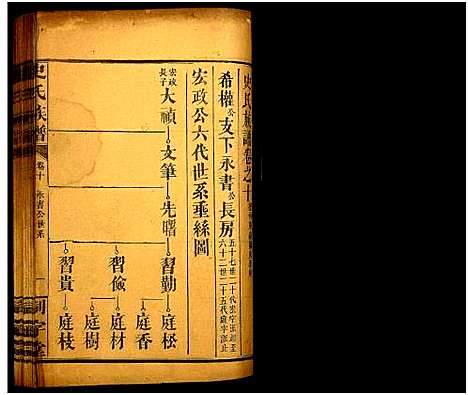 史氏族譜卷之十
希權公支下永書公長房
五十七世二十代宏字派起至
六十二世二十五代庭字派止
宏政公六代世系垂絲圖
宏政長子
大禎 文筆 先曙 習勤 庭松
庭香
習儉 庭材
庭樹
習貴 庭枝
史氏族譜 卷十 永書公世系 一